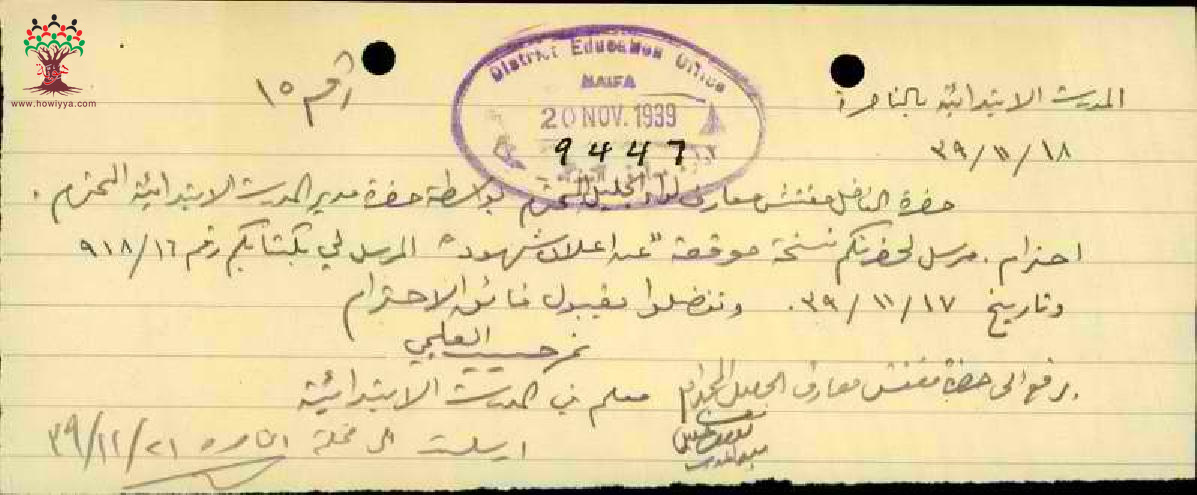 رقم ١٥
المدرسة الابتدائية بالناصرة
٣٩/١١/١٨
District Education Office
HAIFA
20 NOV. 1939
9447
www.howiyya.com
حضرة الفاضل مفتش معارف لواء الجليل المحترم بواسطة حضرة مدير المدرسة الابتدائية المحترم .
احترام . مرسل لحضرتكم نسخة موقعة "عن اعلان شهود" المرسل لي بكتابكم رقم ٩١٨/١٦
وتاريخ ٣٩/١١/١٧. وتفضلوا بقبول فائق الاحترام
العلمي
معلم في المدرسة الابتدائية
يرفع الى حضرة مفتش معارف الجليل المحترم
ارسلت الى محكمة الناصرة ٣٩/١١/٢١